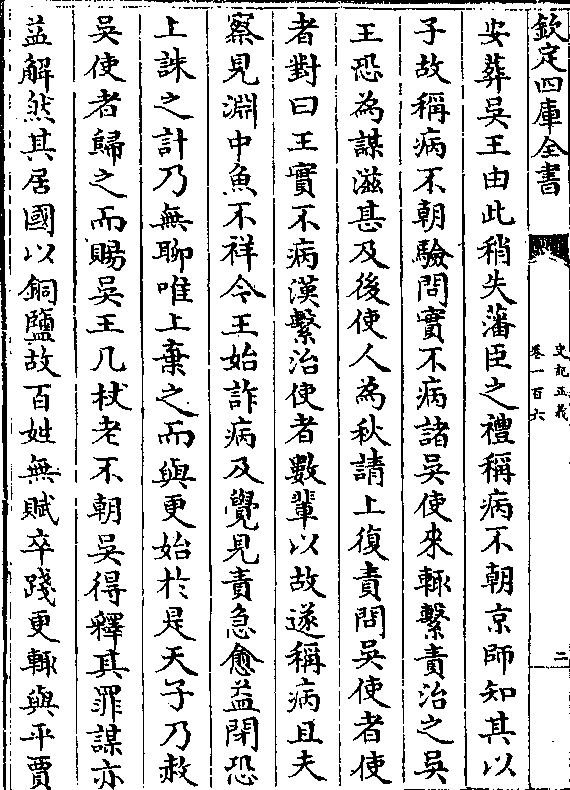 欽定四庫全書
史記正義
卷一百六
二
安葬吳王由此稍失藩臣之禮稱病不朝京師知其以
子故稱病不朝驗問實不病諸吳使來輒繫責治之吳
王恐為謀滋甚及後使人為秋請上復責問吳使者使
者對曰王實不病漢繫治使者數輩以故遂稱病且夫
察見淵中魚不祥今王始詐病及覺見責急愈益閉恐
上誅之計乃無聊唯上棄之而與更始於是天子乃赦
吳使者歸之而賜吳王几杖老不朝吳得釋其罪謀亦
益解然其居國以銅鹽故百姓無賦卒踐更輒與平賈